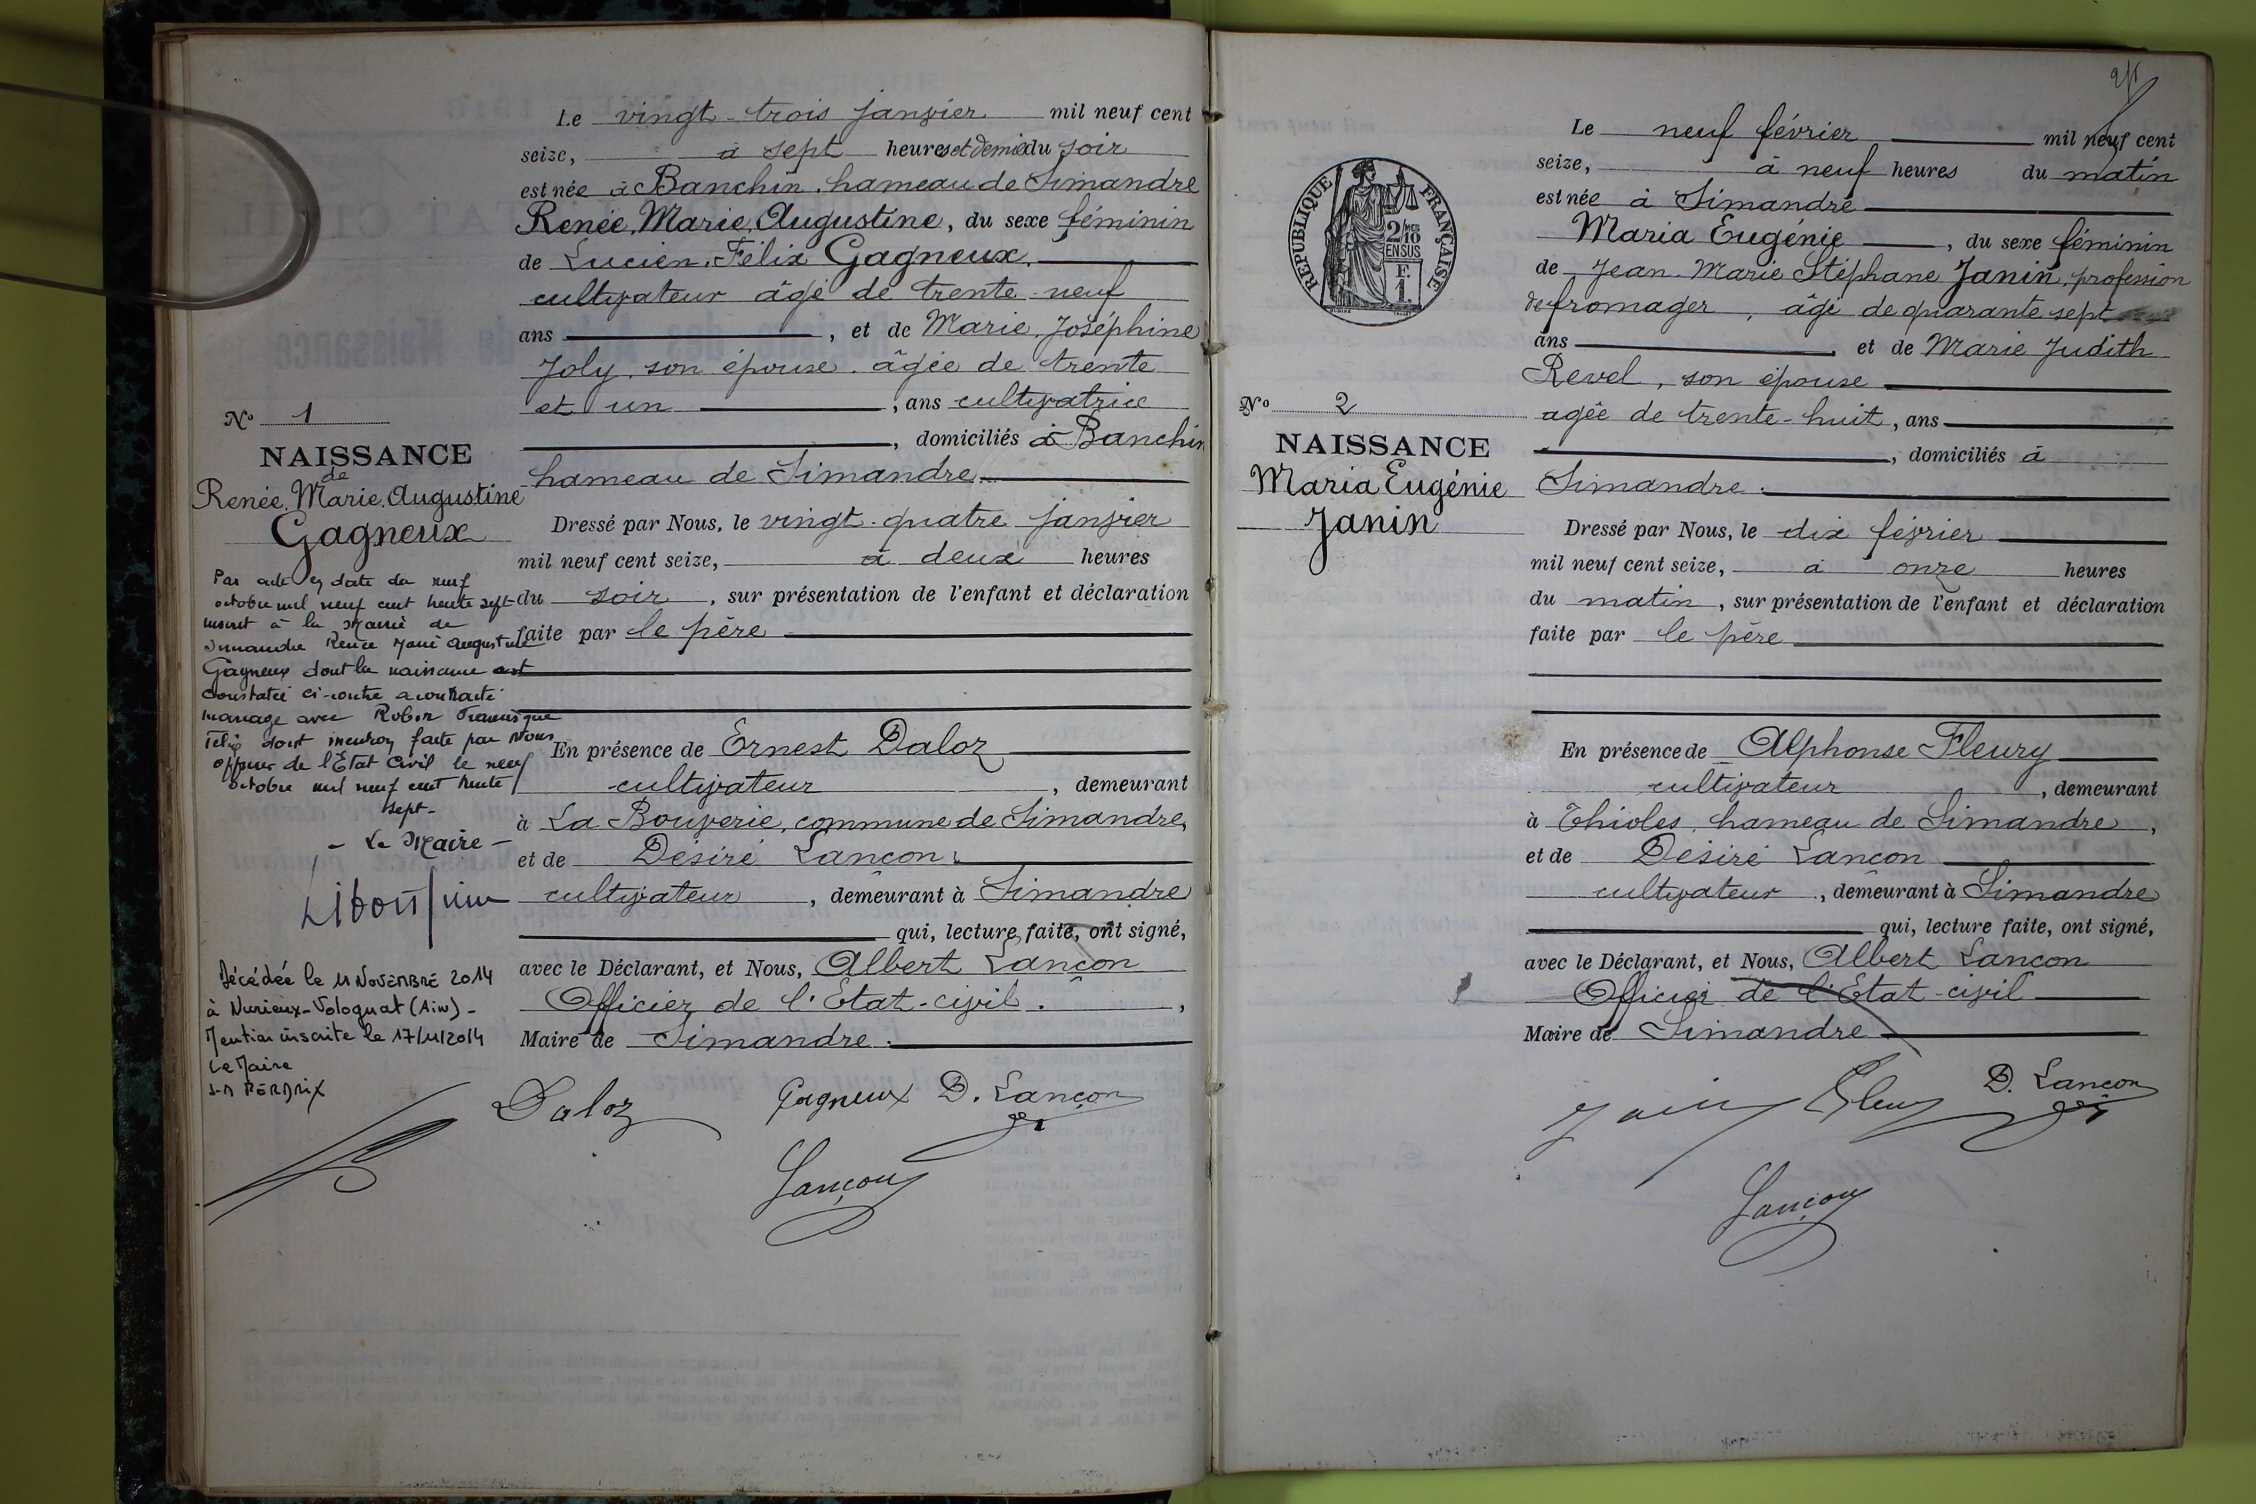 Le vingt-trois janvier mil neuf cent
seize, à sept heures et demie du soir
est née à Banchin, hameau de Simandre
Renée, Marie, Augustine, du sexe féminin
de Lucien, Félix Gagneux,
cultivateur âgé de trente-neuf
ans, et de Marie, Joséphine
Joly, son épouse, âgée de trente
et un, ans cultivatrice
, domiciliés à Banchin
hameau de Simandre
Dressé par Nous, le vingt-quatre janvier
mil neuf cent seize, à deux heures
du soir, sur présentation de l'enfant et déclaration
faite par le père
En présence de Ernest Daloz
cultivateur, demeurant
à La Bouverie, commune de Simandre,
et de Désiré Lançon,
cultivateur, demeurant à Simandre
qui, lecture faite, ont signé,
avec le Déclarant, et Nous, Albert Lançon
Officier de l'Etat-civil.,
Maire de Simandre.
Daloz Gagneux D. Lançon
Lançon
No 1
NAISSANCE
de
Renée, Marie, Augustine
Gagneux
Par acte en date du neuf
octobre mil neuf cent trente sept
inscrit à la Mairie de
Simandre Renée Marie Augustine
Gagneux dont la naissance est
constatée ci-contre a contracté
mariage avec Robin
Félix dont mention faite par Nous
officier de l'Etat Civil le neuf
octobre mil neuf cent trente
sept-
- Le Maire -
Décédée le 11 NOVEMBRE 2014
à Nurieux-Volognat (Ain) -
Mention inscrite le 17/11/2014
Le Maire
J-M PERDRIX
Le neuf février mil neuf cent
seize, à neuf heures du matin
est née à Simandre
Maria Eugénie, du sexe féminin
de Jean-Marie Stéphane Janin, profession
de fromager, âgé de quarante sept
ans et de Marie Judith
Revel, son épouse
agée de trente-huit, ans
, domiciliés à
Simandre.
Dressé par Nous, le dix février
mil neuf cent seize, à onze heures
du matin, sur présentation de l'enfant et déclaration
faite par le père
En présence de Alphonse Fleury
cultivateur, demeurant
à Thioles, hameau de Simandre,
et de Désiré Lançon
cultivateur, demeurant à Simandre
qui, lecture faite, ont signé,
avec le Déclarant, et Nous, Albert Lançon
Officier de l'Etat-civil
Maire de Simandre
Janin Fleury D. Lançon
Lançon
RÉPUBLIQUE FRANÇAISE
2/10
EN SUS
F.
1.
No 2
NAISSANCE
Maria Eugénie
Janin